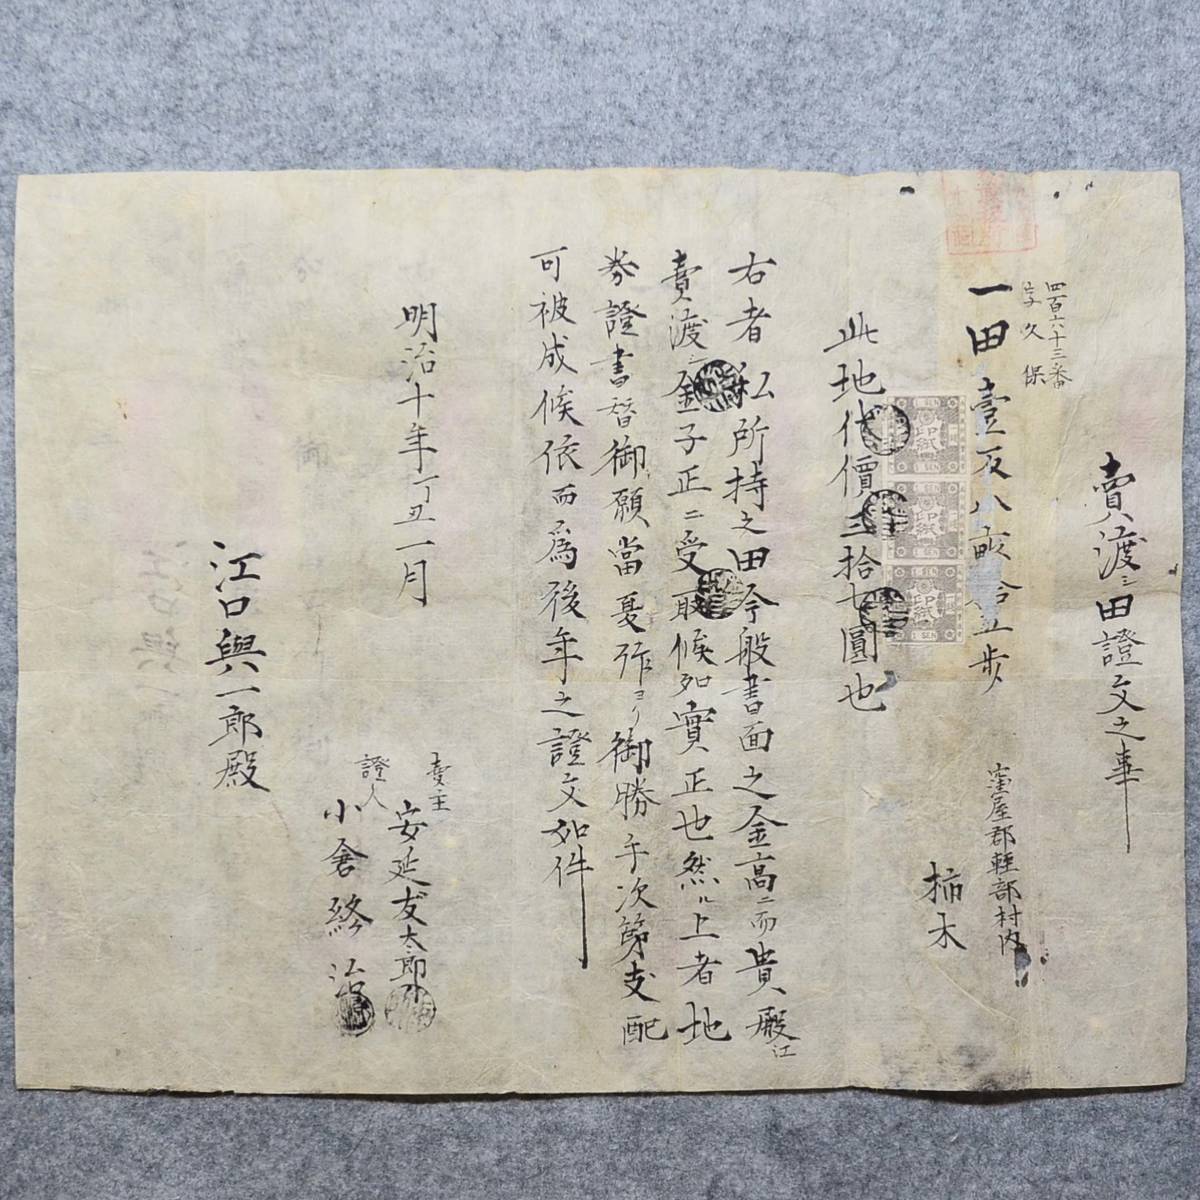 賣渡シ田證文之事
窪屋郡軽部村内
柿木
四百六十三番
字久保
一田壹反八畝拾五歩
此地代價弐拾七圓也
右者私所持之田今般書面之金高ニ而貴殿江
賣渡シ金子正ニ受取候如實正也然ル上者地
券證書替御願當夏作ヨリ御勝手次第支配
可被成候依而為後年之證文如件
明治十年丁丑一月
賣主
安延友太郎
證人
小倉終治
江口與一郎殿
1 SEN
印紙
1 SEN
1 SEN
印紙
1 SEN
1 SEN
印紙
1 SEN